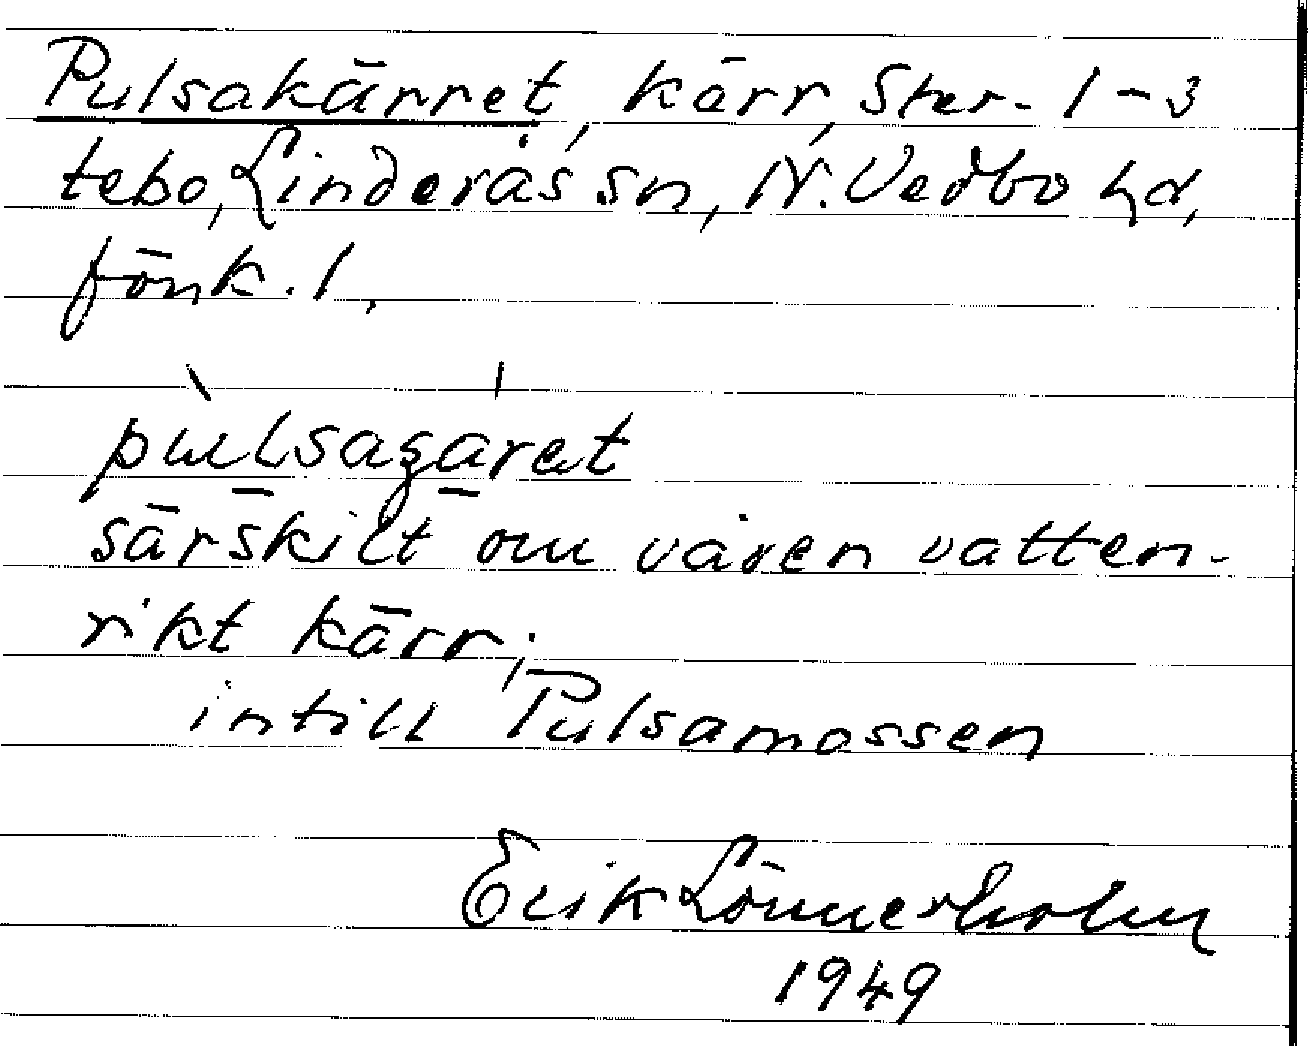 Pulsakärret, kärr, Ster- 1-3
tebo, Linderås sn, N. Vedbo hd,
Jönk. l.
pulsagaret
särskilt om våren vatten-
rikt kärr;
intill Pulsamossen
Erik Lönnerholm
1949